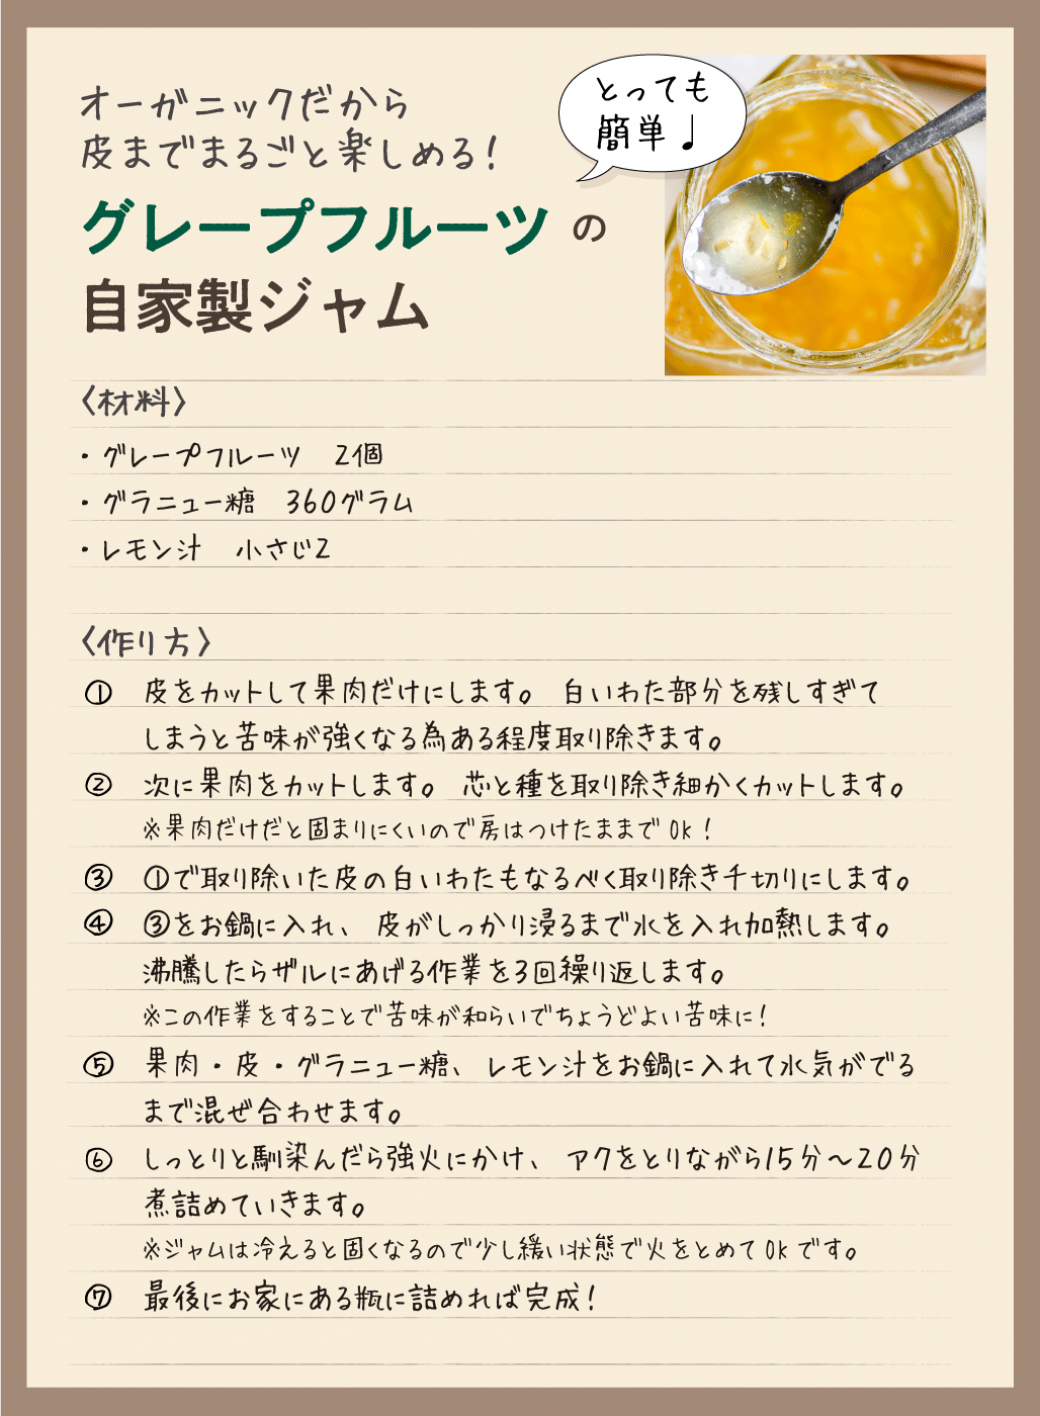 オーガニックだから
皮までまるごと楽しめる！
グレープフルーツの
自家製ジャム
とっても
簡単♩
〈材料〉
・グレープフルーツ　2個
・グラニュー糖　360グラム
・レモン汁　小さじ2
〈作り方〉
① 皮をカットして果肉だけにします。 白いわた部分を残しすぎて
しまうと苦味が強くなる為ある程度取り除きます。
② 次に果肉をカットします。 芯と種を取り除き細かくカットします。
※果肉だけだと固まりにくいので房はつけたままでOK！
③ ①で取り除いた皮の白いわたもなるべく取り除き千切りにします。
④ ③をお鍋に入れ、 皮がしっかり浸るまで水を入れ加熱します。
沸騰したらザルにあげる作業を3回繰り返します。
※この作業をすることで苦味が和らいでちょうどよい苦味に！
⑤ 果肉・皮・グラニュー糖、レモン汁をお鍋に入れて水気がでる
まで混ぜ合わせます。
⑥ しっとりと馴染んだら強火にかけ、 アクをとりながら15分～20分
煮詰めていきます。
※ジャムは冷えると固くなるので少し緩い状態で火をとめてOKです。
⑦ 最後にお家にある瓶に詰めれば完成！